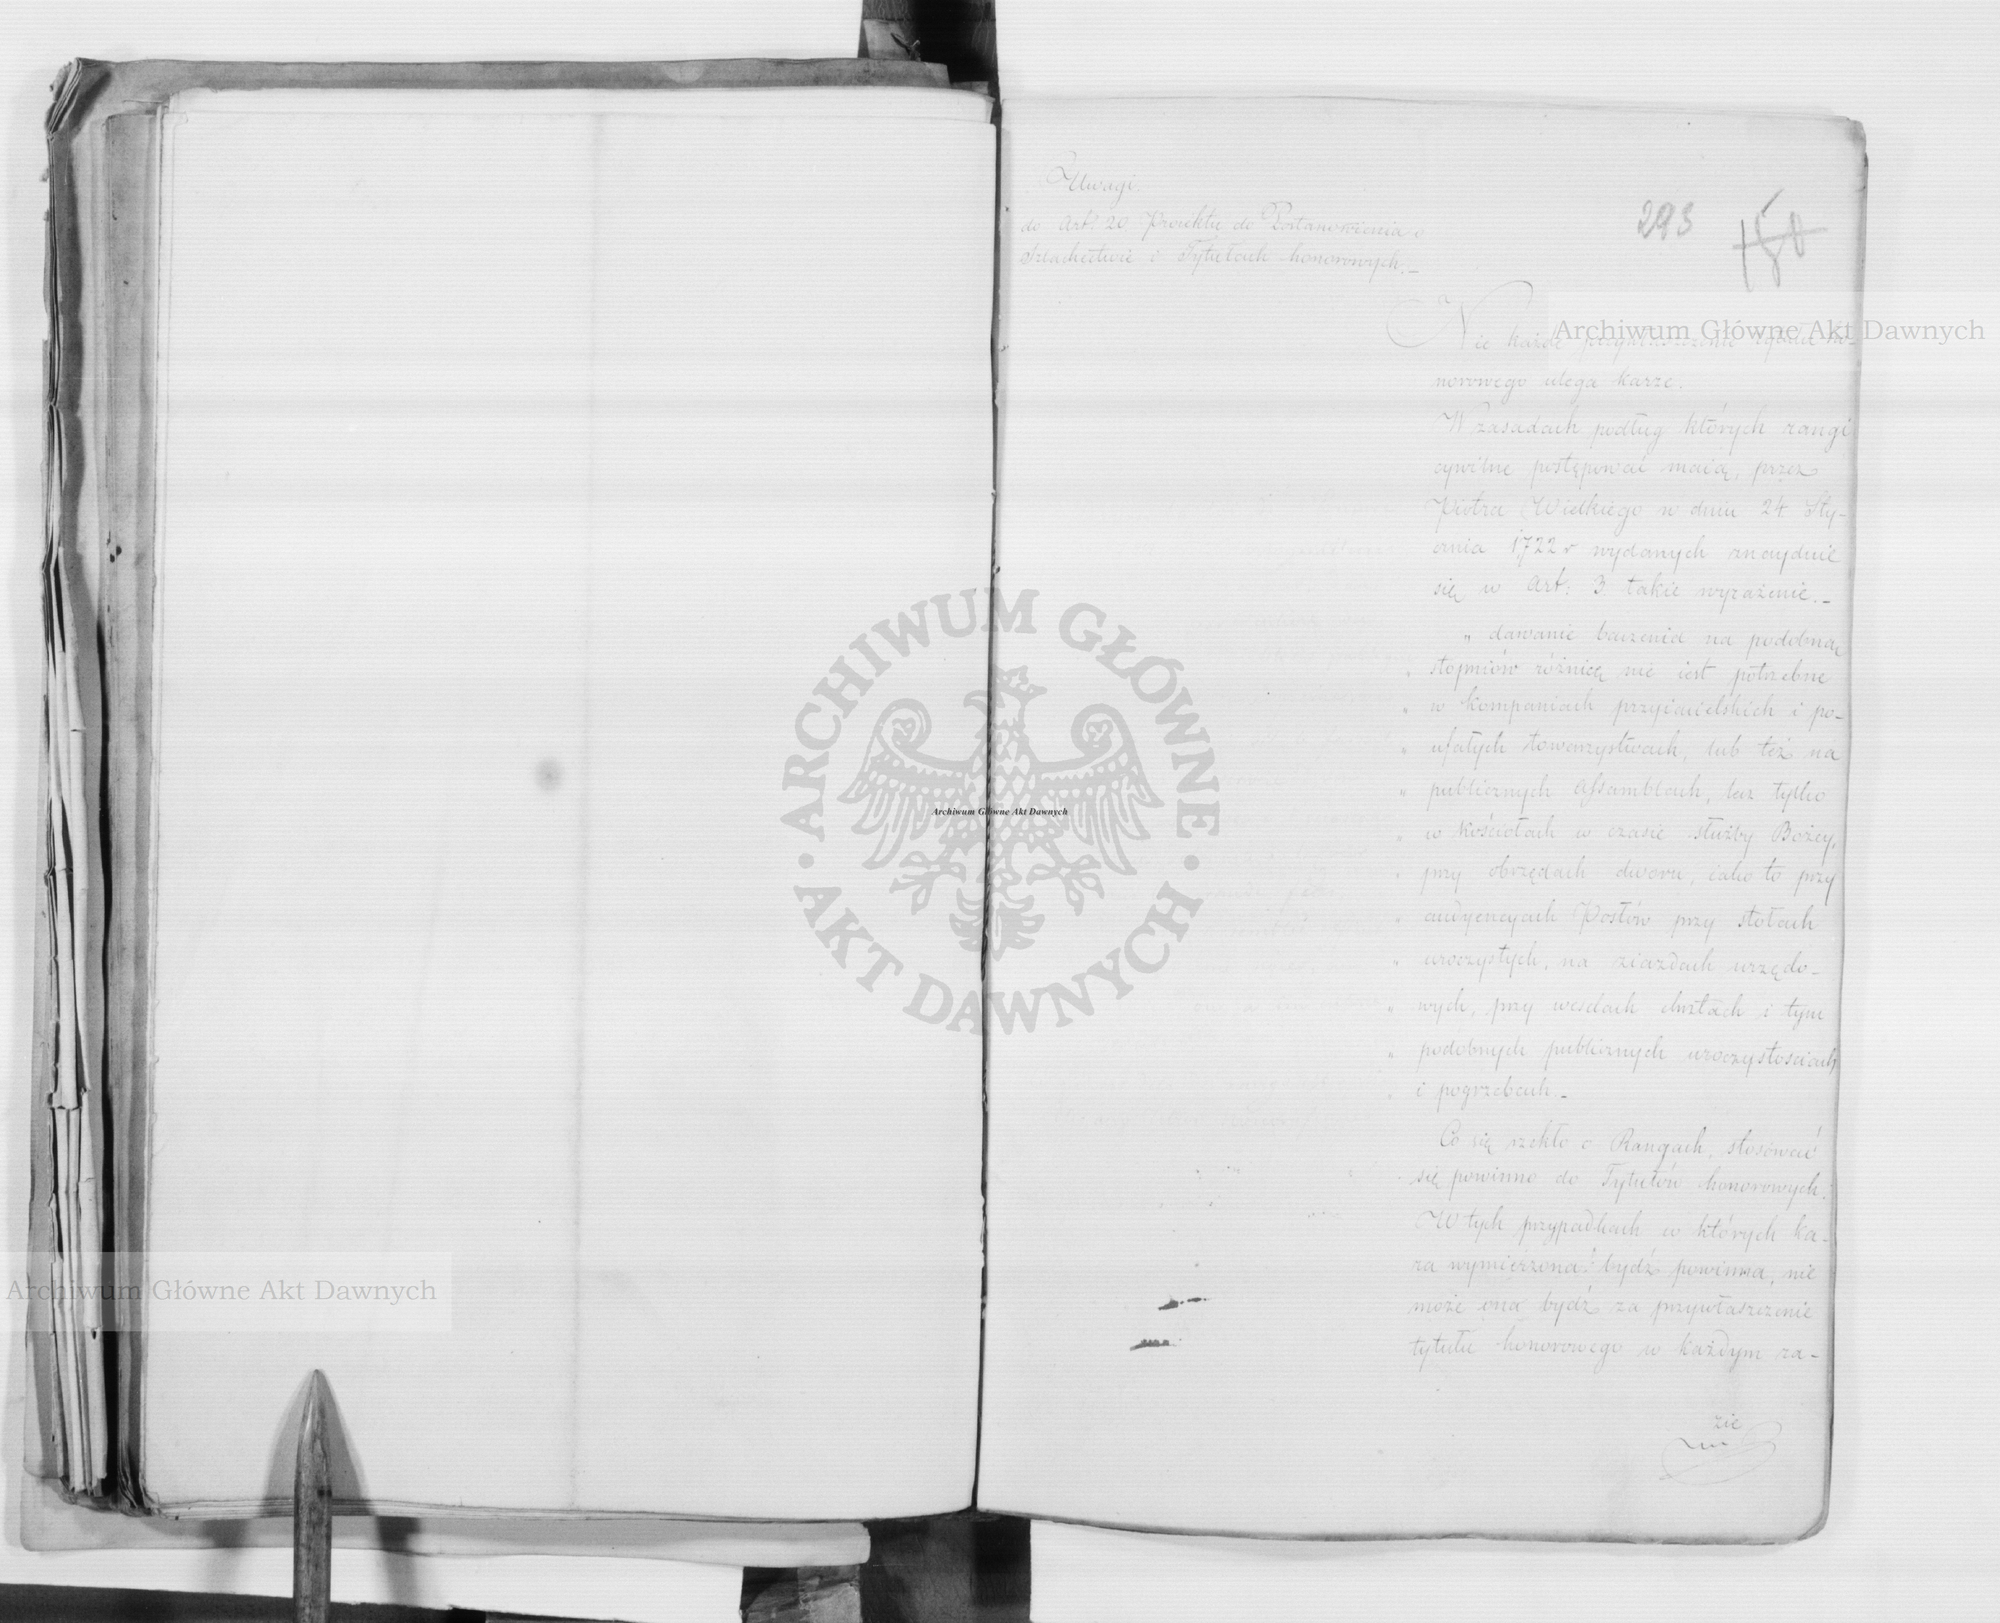 Uwagi
do Art. 20 Proiektu do Postanowienia o
Szlachectwie i Tytułach honorowych._
293
150
Archiwum Główne Akt Dawnych
Nie każde przywłaszczenie tytułu ho-
norowego ulega karze.
W zasadach podług których rangi
cywilne postępować maią, przez
Piotra Wielkiego w dniu 24 Sty-
cznia 1722 r wydanych znayduie
się w Art: 3 takie wyrażenie._
„ dawanie baczenia na podobną
„ stopniów różnicę nie iest potrzebne
„ w kompaniach przyiacielskich i po-
„ ufałych towarzystwach, lub też na
„ publicznych Assamblach, lecz tylko
„ w kościołach w czasie służby Bożey,
„ przy obrzędach dworu, iako to przy
„ audyencyach Posłów przy stołach
„ uroczystych, na ziazdach urzędo-
„ wych, przy weselach chrztach i tym
„ podobnych publicznych uroczystościach
„ i pogrzebach._
Co się rzekło o Rangach, stosować
się powinno do Tytułów honorowych.
W tych przypadkach w których ka-
ra wymierzona bydź powinna, nie
może ona bydź za przywłaszczenie
tytułu honorowego w każdym ra-
zie
ARCHIWUM GŁÓWNE
AKT DAWNYCH
Archiwum Główne Akt Dawnych
Archiwum Główne Akt Dawnych